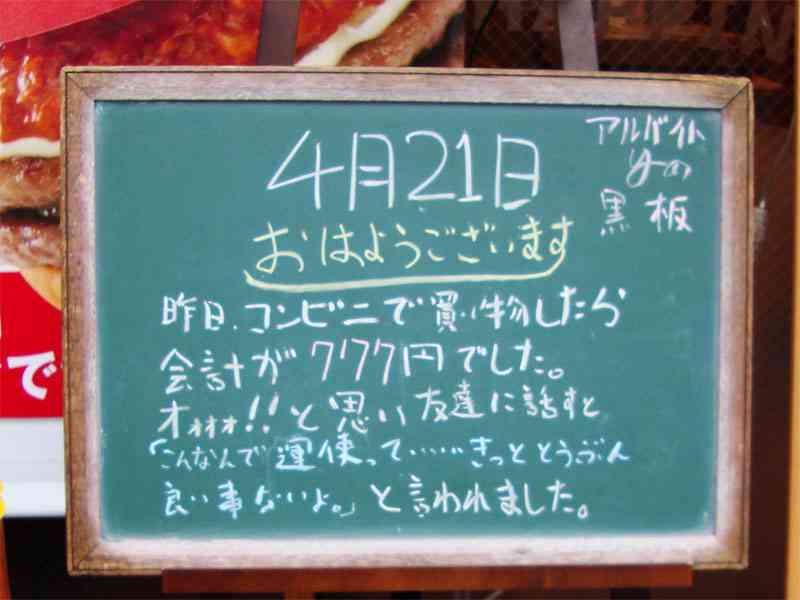 4月21日
アルバイト
yの
黒板
おはようございます
昨日、コンビニで買い物したら
会計が777円でした。
オォォォ!!と思い友達に話すと
「こんなんで運使って……きっととうぶん
良い事ないよ。」と言われました。
で